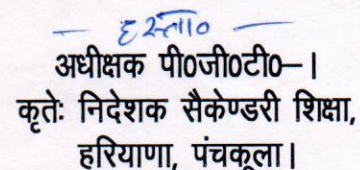 — हस्ता० —
अधीक्षक पी०जी०टी०–।
कृतेः निदेशक सैकेण्डरी शिक्षा,
हरियाणा, पंचकूला।